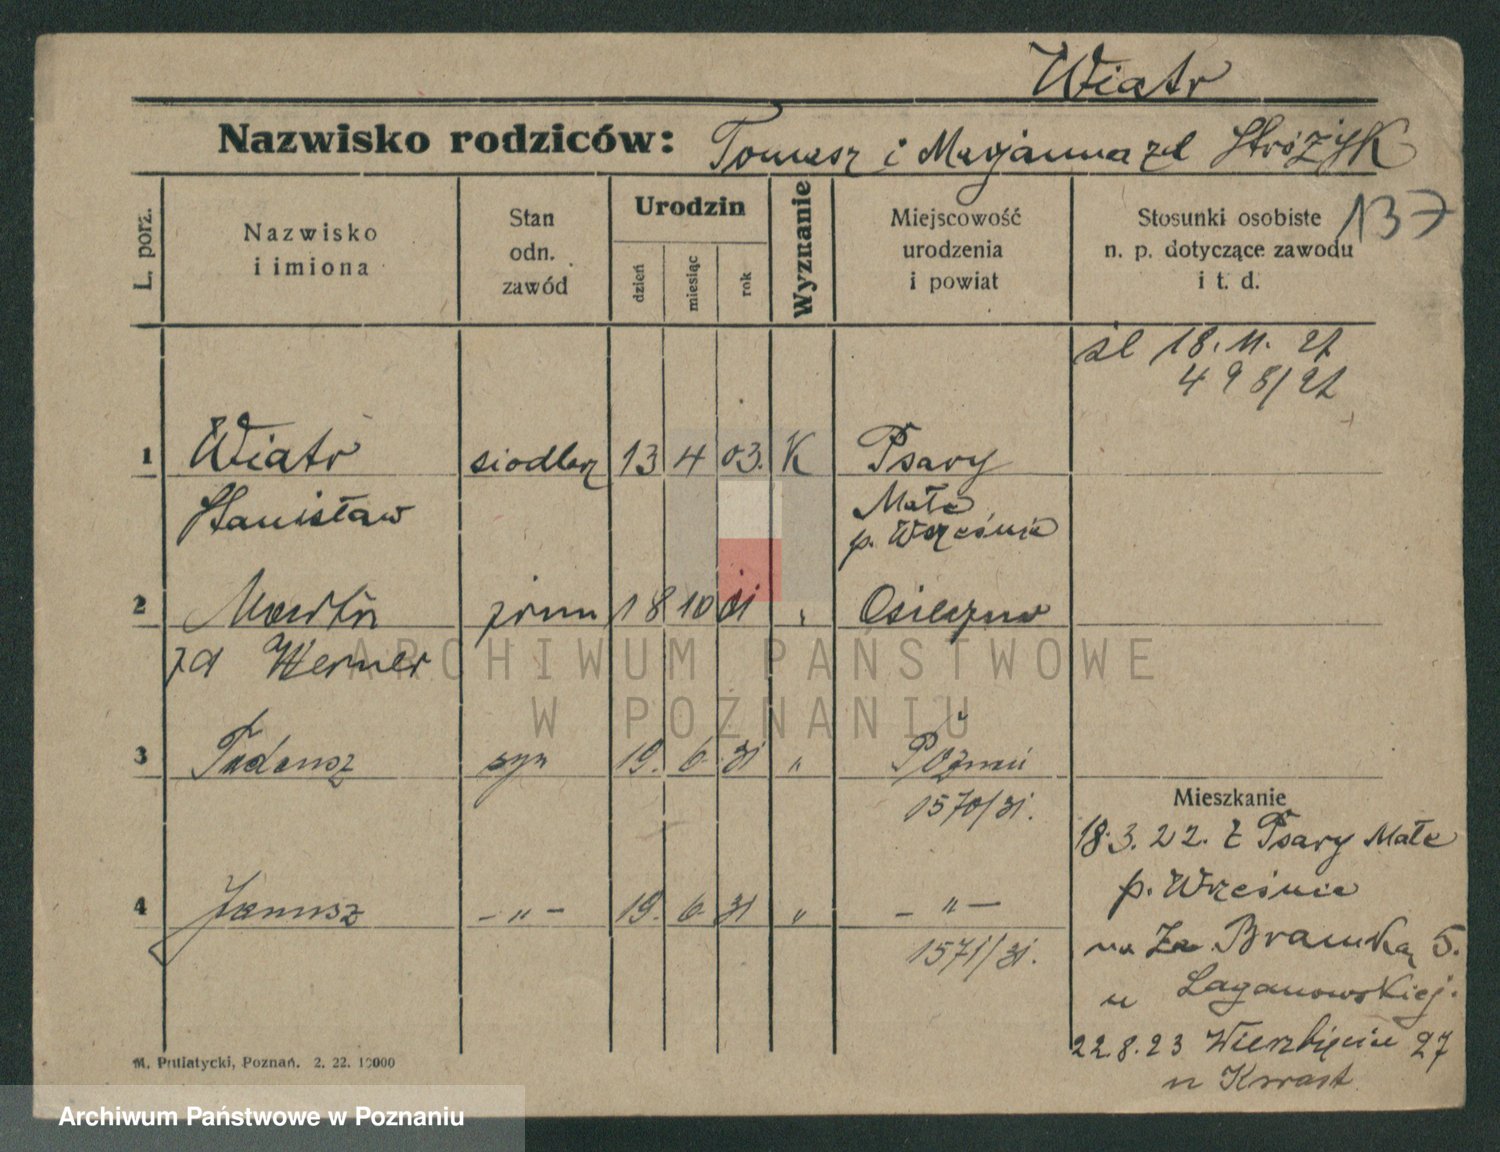 Wiatr
Nazwisko rodziców: Tomasz i Marjanna zd Stróżyk
137
L. porz.
Nazwisko
i imiona
Stan
odn.
zawód
Urodzin
dzień
miesiąc
rok
Wyznanie
Miejscowość
urodzenia
i powiat
Stosunki osobiste
n. p. dotyczące zawodu
i t. d.
śl 18. 11. 27
498/27
1 Wiatr siodlarz 13 4 03. K Psary
Stanisław Małe
p. Września
2 Marta żona 18 10 01 " Osieczno
zd Werner
3 Tadeusz syn 19. 6 31 " Poznań
1570/31.
4 Janusz - " - 19. 6 31 " - " -
1571/31.
Mieszkanie
18.3.22. z Psary Małe
p. Września
na Za Bramką 5.
u Łaganowskiej.
22.8.23 Wierzbięcice 27
u Kwast
M. Putiatycki, Poznań. 2. 22. 10000
ARCHIWUM PAŃSTWOWE
W POZNANIU
Archiwum Państwowe w Poznaniu